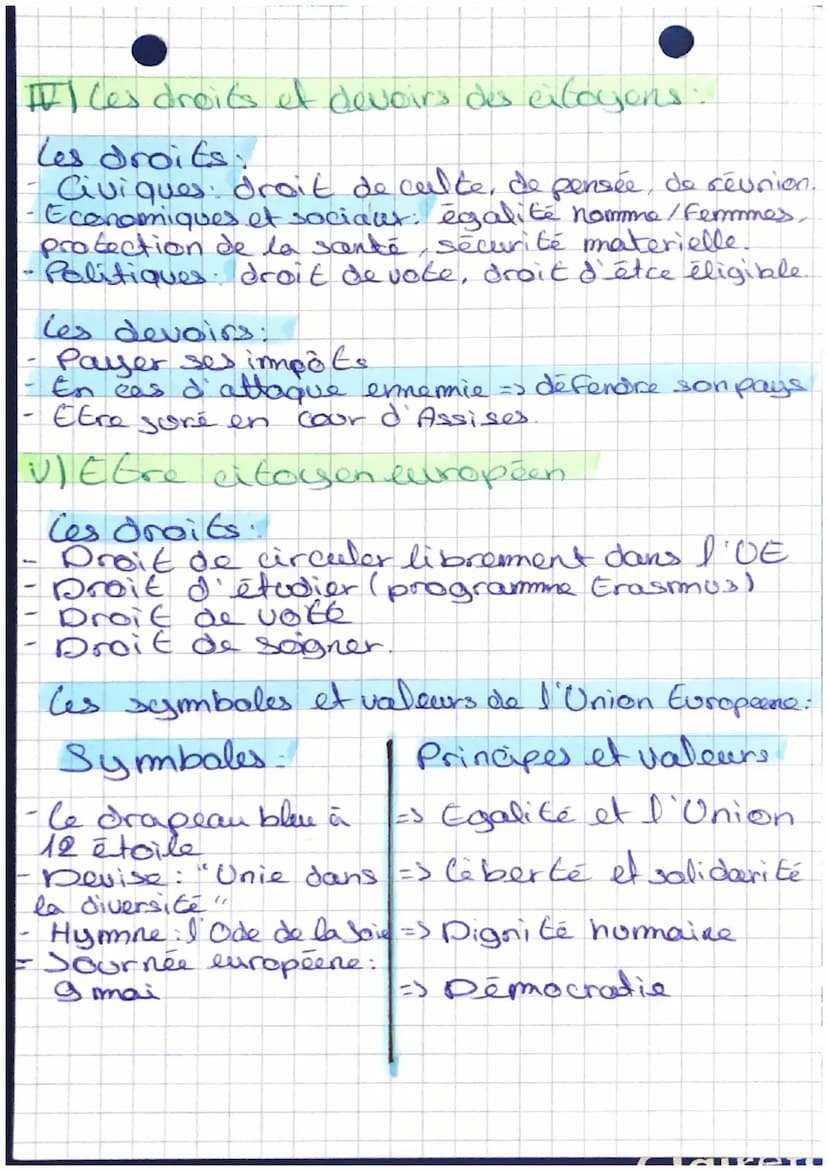 IV) Les droits et devoirs des citoyens:
Les droits:
- Civiques: droit de culte, de pensée, de réunion.
- Economiques et sociaux: égalité homme/Femmes,
protection de la santé, sécurité materielle.
- Politiques: droit de vote, droit d'être éligible.
Les devoirs:
- Payer ses impôts
- En cas d'attaque ennemie => défendre son pays
- Etre juré en cour d'Assises.
V) Etre citoyen européen
Les droits:
- Droit de circuler librement dans l'UE
- Droit d'étudier (programme Erasmus)
- Droit de vote
- Droit de soigner.
Les symboles et valeurs de l'Union Europeene:
Symboles:
- Le drapeau bleu à
12 étoile
- Devise: "Unie dans
la diversité"
- Hymne: l'Ode de la Joie
- Journée européene:
9 mai
Principes et valeurs
=> Egalité et l'Union
=> Liberté et solidarité
=> Dignité humaine
=> Démocratie